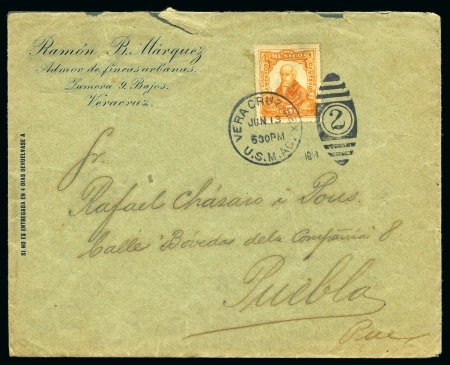 Ramón B. Márquez
Admor. de fincas urbanas.
Zamora 9. Bajos.
Veracruz.
VERA CRUZ
JUN 13
630PM
U.S.M. AG.
2
SI NO ES ENTREGADA EN 4 DIAS DEVUELVASE A
Sr.
Rafael Cházaro i Pous.
Calle Bóvedas de la Compañia 8
Puebla
Pue.